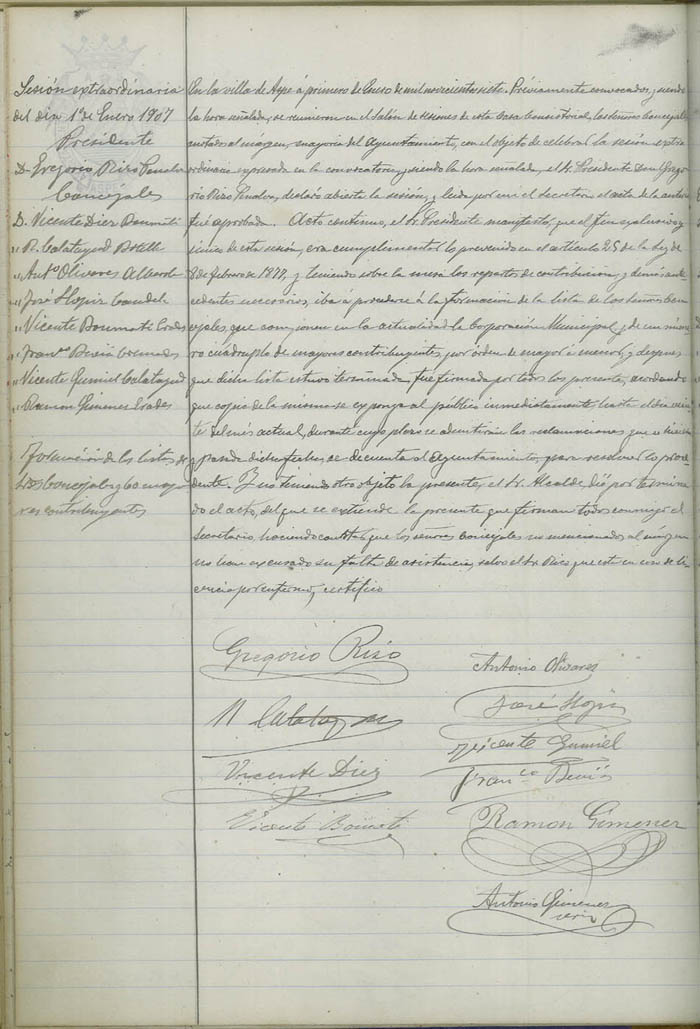 Sesión extraordinaria
del dia 1º de Enero 1907
Presidente
D. Gregorio Rizo Penalva
Concejales
D. Vicente Diez Boumati
" R. Calatayud Botella
" Antº Olivares Alberola
" José Llopiz Candela
" Vicente Boumati Erades
" Franco
" Vicente Gumiel Calatayud
" Ramon Gimenez Erades
Formación de las listas de
Sres Concejales y mayo-
res contribuyentes
En la villa de Aspe á primero de Enero de mil novecientos siete. Préviamente convocados, y siendo
la hora señalada, se reunieron en el Salón de sesiones de esta Casa Consistorial, los señores Concejales
notados al márgen, mayoria del Ayuntamiento, con el objeto de celebrar la sesión extra-
ordinaria expresada en la convocatoria, y siendo la hora señalada, el Sr. Presidente Don Grego-
rio Rizo Penalva, declaró abierta la sesión, y leida por mi el Secretario el acta de la anterior
fué aprobada. Acto continuo, el Sr. Presidente manifestó, que el fin exclusivo y
único de esta sesión, era cumplimentar lo prevenido en el artículo 25 de la Ley de
8 de febrero de 1877, y teniendo sobre la mesa los repartos de contribución, y demás ante-
cedentes necesarios, iba á procederse á la formación de la lista de los señores Con-
cejales, que componen en la actualidad la Corporación Municipal, y de un núme-
ro cuádruplo de mayores contribuyentes, por órden de mayor á menor, y despues
que dicha lista estuvo terminada, fue firmada por todos los presentes, acordando
que copia de la misma se exponga al público inmediatamente hasta el dia vein-
te del més actual, durante cuyo plazo se admitirán las reclamaciones que se hicieren
y pasada dicha fecha, se dé cuenta al Ayuntamiento, para resolver lo proce-
dente. Y no teniendo otro objeto la presente, el Sr. Alcalde, dió por termina-
do el acto, del que se extiende la presente que firman todos conmigo el
Secretario, haciendo constar que los señores Concejales no mencionados al márgen
no han excusado su falta de asistencia, salvo el Sr. que está en uso de li-
cencia por enfermo, certifico
Gregorio Rizo
Antonio Olivares
José Llopiz
R Calatayud
Vicente Gumiel
Vicente Diez
Franco
Vicente Boumati
Ramon Gimenez
Antonio Gimenez